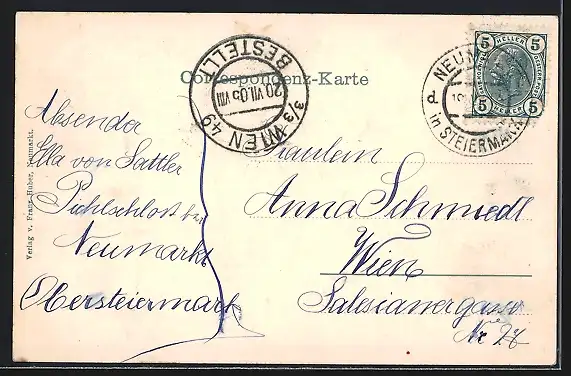 Correspondenz-Karte
BESTELLT
3/3 WIEN 49
20.VII.05 VIII
NEUM
in STEIERMARK
5 HELLER 5
5 5
Absender
Ella von Sattler
Pichlschloß bei
Neumarkt
Obersteiermark
Fräulein
Anna Schmiedl
Wien
Salesianergasse
Nr 27
Verlag v. Franz Huber, Neumarkt.